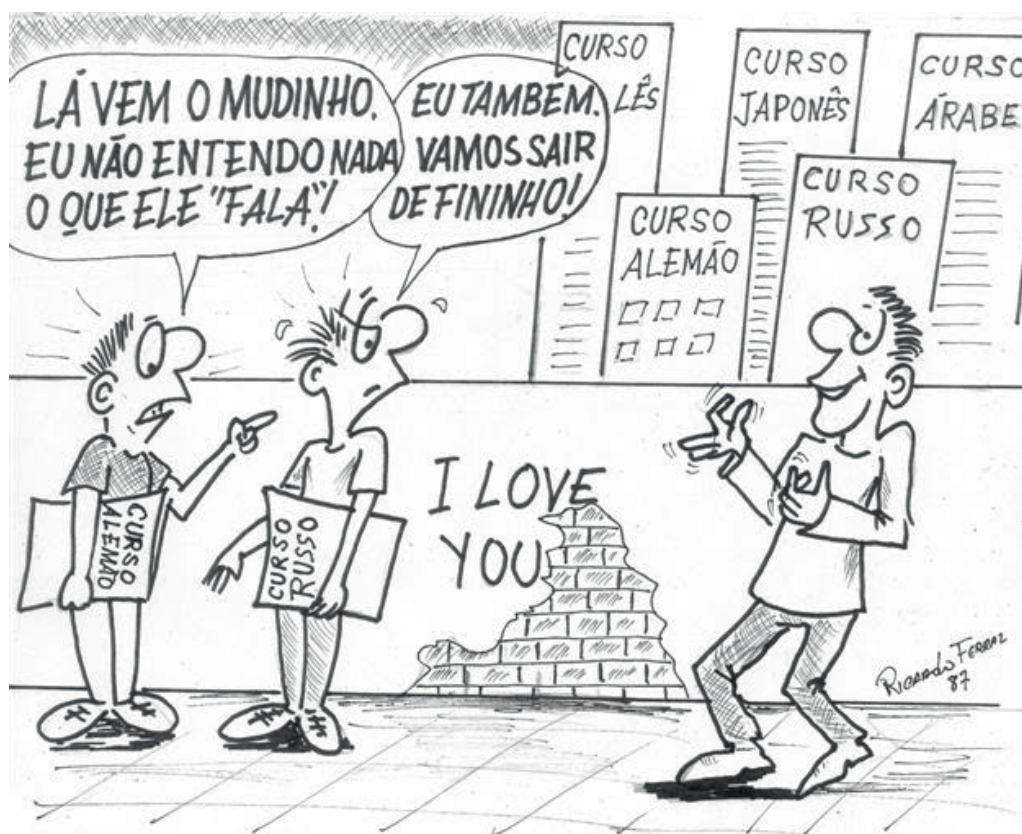 LÁ VEM O MUDINHO.
EU NÃO ENTENDO NADA
O QUE ELE "FALA"!
EU TAMBÉM.
VAMOS SAIR
DE FININHO!
CURSO
LÊS
CURSO
JAPONÊS
CURSO
ÁRABE
CURSO
RUSSO
CURSO
ALEMÃO
CURSO
ALEMÃO
CURSO
RUSSO
I LOVE
YOU
RICARDO FERRAZ
87